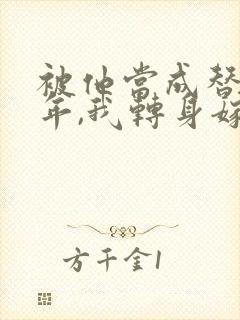 被他當成替
年,我轉身嫁
方千金1